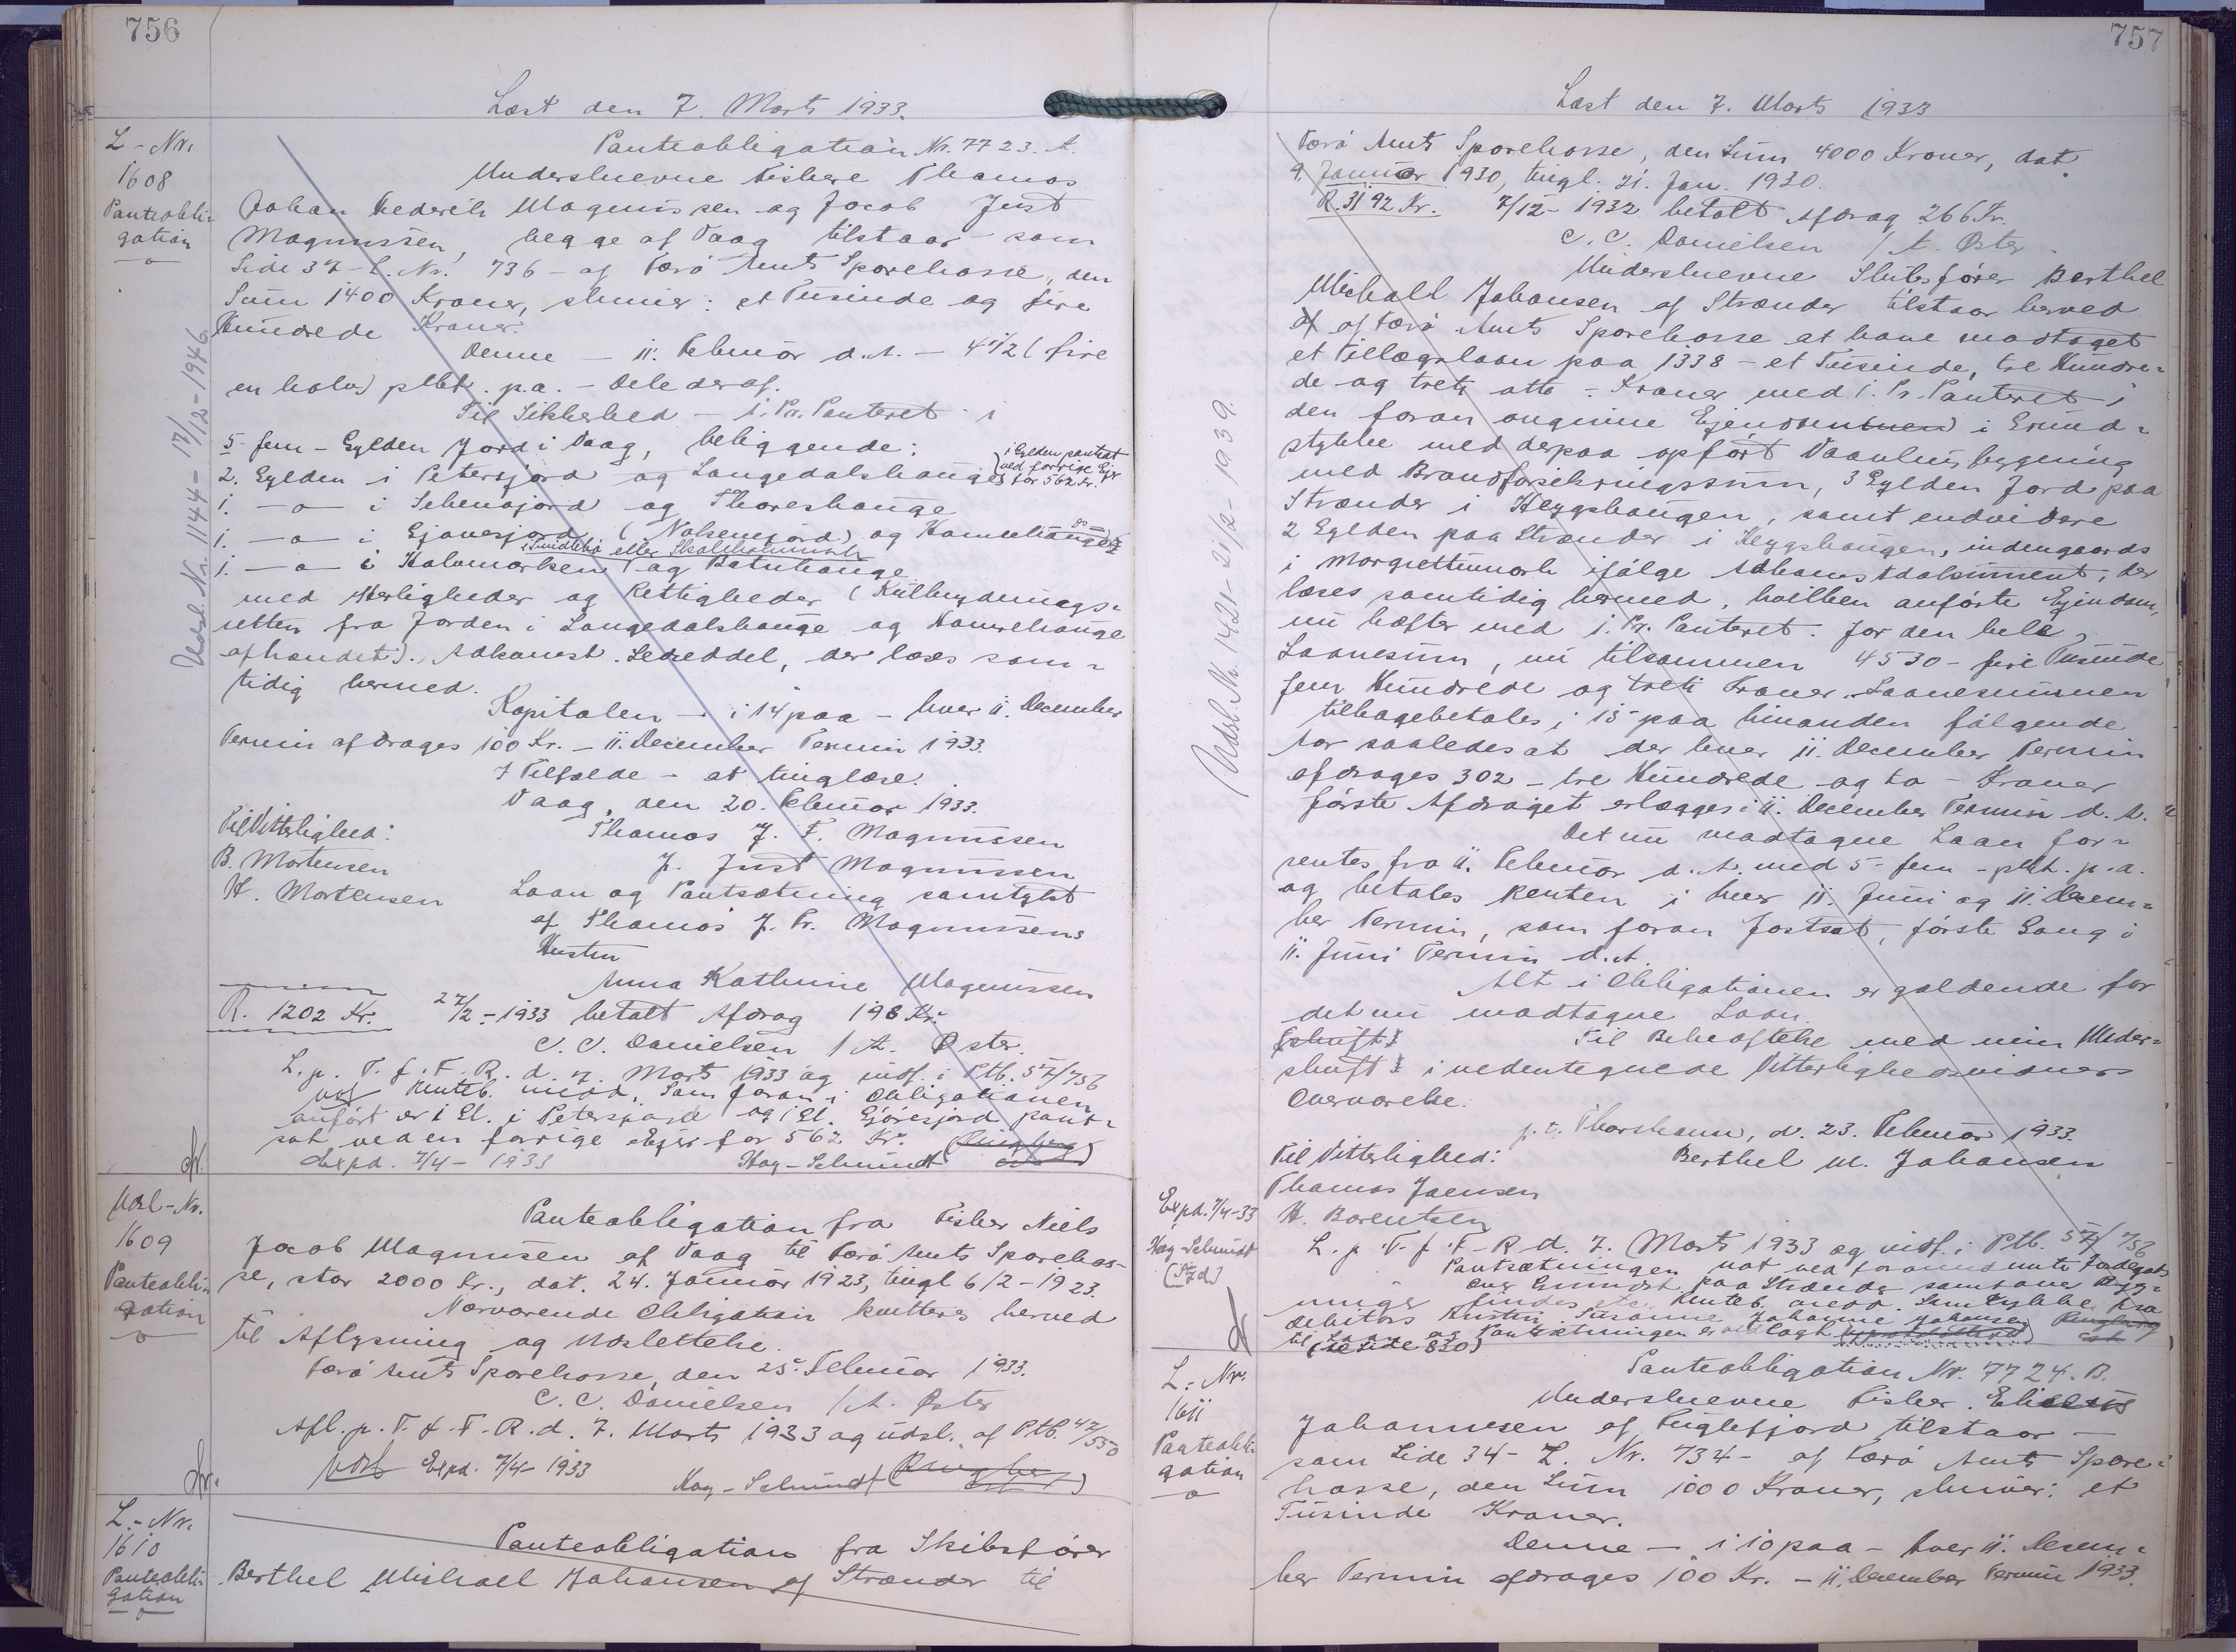 756
Læst den 7. Marts 1933.
L-Nr.
1608
Panteobli-
gation
Panteobligation Nr. 7723. A.
Underskrevne Fiskere Thomas
Johan Frederik Magnussen og Jacob Just
Magnussen, begge af Vaag tilstaar - som
Side 37 - L. Nr. 736 - af Færø Amts Sparekasse, den
Sum 1400 Kroner, skriver: et Tusinde og fire
Hundrede Kroner.
Denne - 11. Februar d. A. - 4 1/2 (fire
en halv) pCt. p.a. - Dele deraf.
Til Sikkerhed - 1. Pr. Panteret i
5 - fem - Gylden Jord i Vaag, beliggende:
2. Gylden i Petersjord og Langedalshauge
1 Gylden pantsat
ved forrige Ejer
for 562 Kr.
1. -o- i og Thoreshauge
1. -o- i Gjovesjord (Nolsensjord) og
eller
1. -o- i Kalvmarken og Batnhauge
med Herligheder og Rettigheder (Kulbrydnings-
retten fra Jorden i Langedalshauge og Hamrehauge
afhændet). Adkomst. Ledseddel, der læses sam-
tidig hermed.
Kapitalen - i 14 paa - hver 11. December
Termin afdrages 100 Kr. - 11. December Termin 1933.
I Tilfælde - at tinglæse.
Vaag, den 20. Februar 1933.
Til Vitterlighed:
Thomas J. F. Magnussen
B. Mortensen
J. Just Magnussen
H. Mortensen
Laan og Pantsætning samtykt
af Thomas J. Fr. Magnussens
Hustru
Anna Kathrine Magnussen
R. 1202 Kr. 27/2 - 1933 betalt Afdrag 198 Kr.
C. C. Danielsen / A. Øster.
L. p. T. f. F. R. d. 7. Marts 1933 og indf. i Ptb. 57/756
Som foran i Obligationen
anført er 1 Gl. i Petersjord og 1 Gl. Gjovesjord pant-
sat ved en forrige Ejer for 562 Kr. (Ringberg)
Expd. 7/4 - 1933 Kay-Schmidt
Udsl. Nr. 1144 - 17/12 - 1946.
Udsl-Nr.
1609
Panteobli-
gation
Panteobligation fra Fisker Niels
Jacob Magnussen af Vaag til Færø Amts Sparekas-
se, stor 2000 Kr., dat. 24. Januar 1923, tingl 6/2 - 1923.
Nærværende Obligation kvitteres herved
til Aflysning og Udslettelse.
Færø Amts Sparekasse, den 25. Februar 1933.
C. C. Danielsen / A. Øster
Afl. p. T. f. F. R. d. 7. Marts 1933 og udsl. af Ptb. 47/550
Expd. 7/4 - 1933 Kay-Schmidt (Ringberg)
L.-Nr.
1610
Panteobli-
gation
Panteobligation fra Skibsfører
Berthel Michael Johansen af Strænder til
757
Læst den 7. Marts 1933
Færø Amts Sparekasse, den Sum 4000 Kroner, dat.
9. Januar 1930, tingl. 21. Jan. 1930.
R. 3192 Kr. 7/12 - 1932 betalt Afdrag 266 Kr.
C. C. Danielsen / A. Øster.
Underskrevne Skibsfører Berthel
Michael Johansen af Strænder tilstaar herved
af af Færø Amts Sparekasse at have modtaget
et Tillægslaan paa 1338 - et Tusinde, tre Hundre-
de og treti otte - Kroner med 1. Pr. Panteret i
den foran angivne Ejendom i Grund-
stykke med derpaa opført Vaanhusbygning
med Brandforsikringssum, 3 Gylden Jord paa
Strænder i Heygshaugen, samt endvidere
2 Gylden paa Strænder i Heygshaugen, indengaards
i ifølge Adkomstdokument, der
læses samtidig hermed, hvilken anførte Ejendom,
nu hæfter med 1. Pr. Panteret. for den hele
Laanesum, nu tilsammen 4530 - fire Tusinde
fem Hundrede og treti Kroner. Laanesummen
tilbagebetales i 15 paa hinanden følgende
Aar saaledes at der hver 11. December Termin
afdrages 302 - tre Hundrede og to - Kroner
første Afdraget erlægges i 11. December Termin d. A.
Det nu modtagne Laan for-
rentes fra 11. Februar d. A. med 5 - fem - pCt. p. a.
og betales Renten i hver 11. Juni og 11. Decem-
ber Termin, som foran fastsat, første Gang i
11. Juni Termin d. A.
Alt i Obligationen er gældende for
det nu modtagne Laan.
Til Bekræftelse med min Under-
skrift i vedentegnede Vitterlighedsvidners
Overværelse.
p. t. Thorshavn, d. 23. Februar 1933.
Til Vitterlighed: Berthel M. Johansen
Thomas Joensen
H. Berentsen
L. p. T. f. F-R d. 7. Marts 1933 og indf. i Ptb. 57/756
Pantsætningen
paa Strænder samt
findes Samtykke fra
Debitors Hustru Susanne Johanne Johansen
til Laan og Pantsætningen er
(se Side 830)
Udsl. Nr. 1421 - 21/2 - 1939.
Expd. 7/4-33
Kay-Schmidt
L.-Nr.
1611
Panteobli-
gation
Panteobligation Nr. 7724. B.
Underskrevne Fisker
Johannesen af Fuglefjord tilstaar -
som Side 34 - L. Nr. 734 - af Færø Amts Spare-
kasse, den Sum 1000 Kroner, skriver: et
Tusinde Kroner.
Denne - i 10 paa - hver 11. Decem-
ber Termin afdrages 100 Kr. - 11. December Termin 1933.